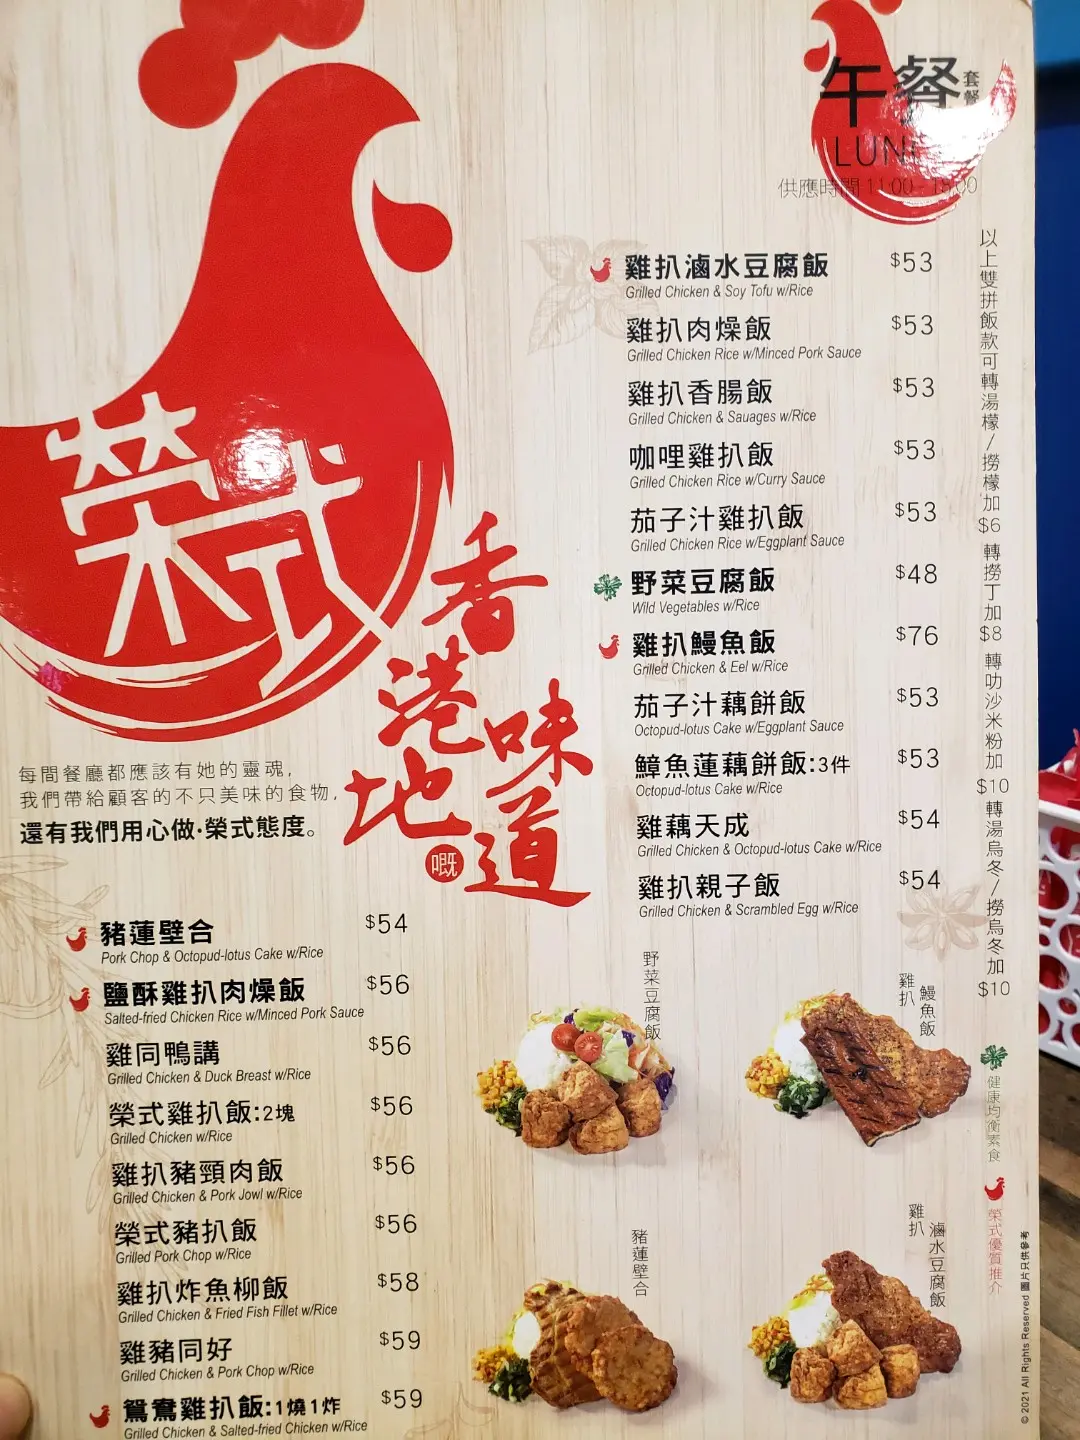 午餐 套餐
供應時間 11:00 - 18:00
榮式
香港地
嘅
味道
每間餐廳都應該有她的靈魂,
我們帶給顧客的不只美味的食物,
還有我們用心做·榮式態度。
雞扒滷水豆腐飯 $53
Grilled Chicken & Soy Tofu w/Rice
雞扒肉燥飯 $53
Grilled Chicken Rice w/Minced Pork Sauce
雞扒香腸飯 $53
Grilled Chicken & Sauages w/Rice
咖哩雞扒飯 $53
Grilled Chicken Rice w/Curry Sauce
茄子汁雞扒飯 $53
Grilled Chicken Rice w/Eggplant Sauce
野菜豆腐飯 $48
Wild Vegetables w/Rice
雞扒鰻魚飯 $76
Grilled Chicken & Eel w/Rice
茄子汁藕餅飯 $53
Octopud-lotus Cake w/Eggplant Sauce
鱆魚蓮藕餅飯:3件 $53
Octopud-lotus Cake w/Rice
雞藕天成 $54
Grilled Chicken & Octopud-lotus Cake w/Rice
雞扒親子飯 $54
Grilled Chicken & Scrambled Egg w/Rice
以上雙拼飯款可轉湯檬/撈檬加$6 轉撈丁加$8 轉叻沙米粉加$10 轉湯烏冬/撈烏冬加$10
豬蓮壁合 $54
Pork Chop & Octopud-lotus Cake w/Rice
鹽酥雞扒肉燥飯 $56
Salted-fried Chicken Rice w/Minced Pork Sauce
雞同鴨講 $56
Grilled Chicken & Duck Breast w/Rice
榮式雞扒飯:2塊 $56
Grilled Chicken w/Rice
雞扒豬頸肉飯 $56
Grilled Chicken & Pork Jowl w/Rice
榮式豬扒飯 $56
Grilled Pork Chop w/Rice
雞扒炸魚柳飯 $58
Grilled Chicken & Fried Fish Fillet w/Rice
雞豬同好 $59
Grilled Chicken & Pork Chop w/Rice
鴛鴦雞扒飯:1燒1炸 $59
Grilled Chicken & Salted-fried Chicken w/Rice
野菜豆腐飯
雞扒
鰻魚飯
豬蓮壁合
雞扒
滷水豆腐飯
健康均衡素食
榮式優質推介
© 2021 All Rights Reserved 圖片只供參考